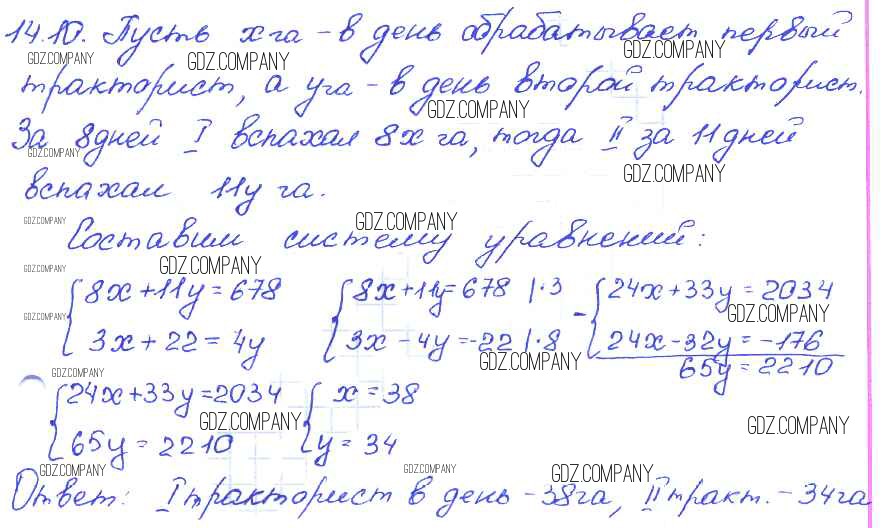 14.10. Пусть x га - в день обрабатывает первый
GDZ.COMPANY GDZ.COMPANY GDZ.COMPANY
тракторист, а y га - в день второй тракторист.
GDZ.COMPANY
За 8 дней I вспахал 8x га, тогда II за 11 дней
GDZ.COMPANY GDZ.COMPANY
вспахал 11y га.
GDZ.COMPANY GDZ.COMPANY
Составим систему уравнений:
GDZ.COMPANY GDZ.COMPANY
{ 8x + 11y = 678 { 8x + 11y = 678 | · 3 - { 24x + 33y = 2034
GDZ.COMPANY GDZ.COMPANY
3x + 22 = 4y 3x - 4y = -22 | · 8 24x - 32y = -176
GDZ.COMPANY
65y = 2210
GDZ.COMPANY
{ 24x + 33y = 2034 { x = 38
GDZ.COMPANY GDZ.COMPANY
65y = 2210 y = 34
GDZ.COMPANY GDZ.COMPANY GDZ.COMPANY
Ответ: I тракторист в день - 38 га, II тракт. - 34 га